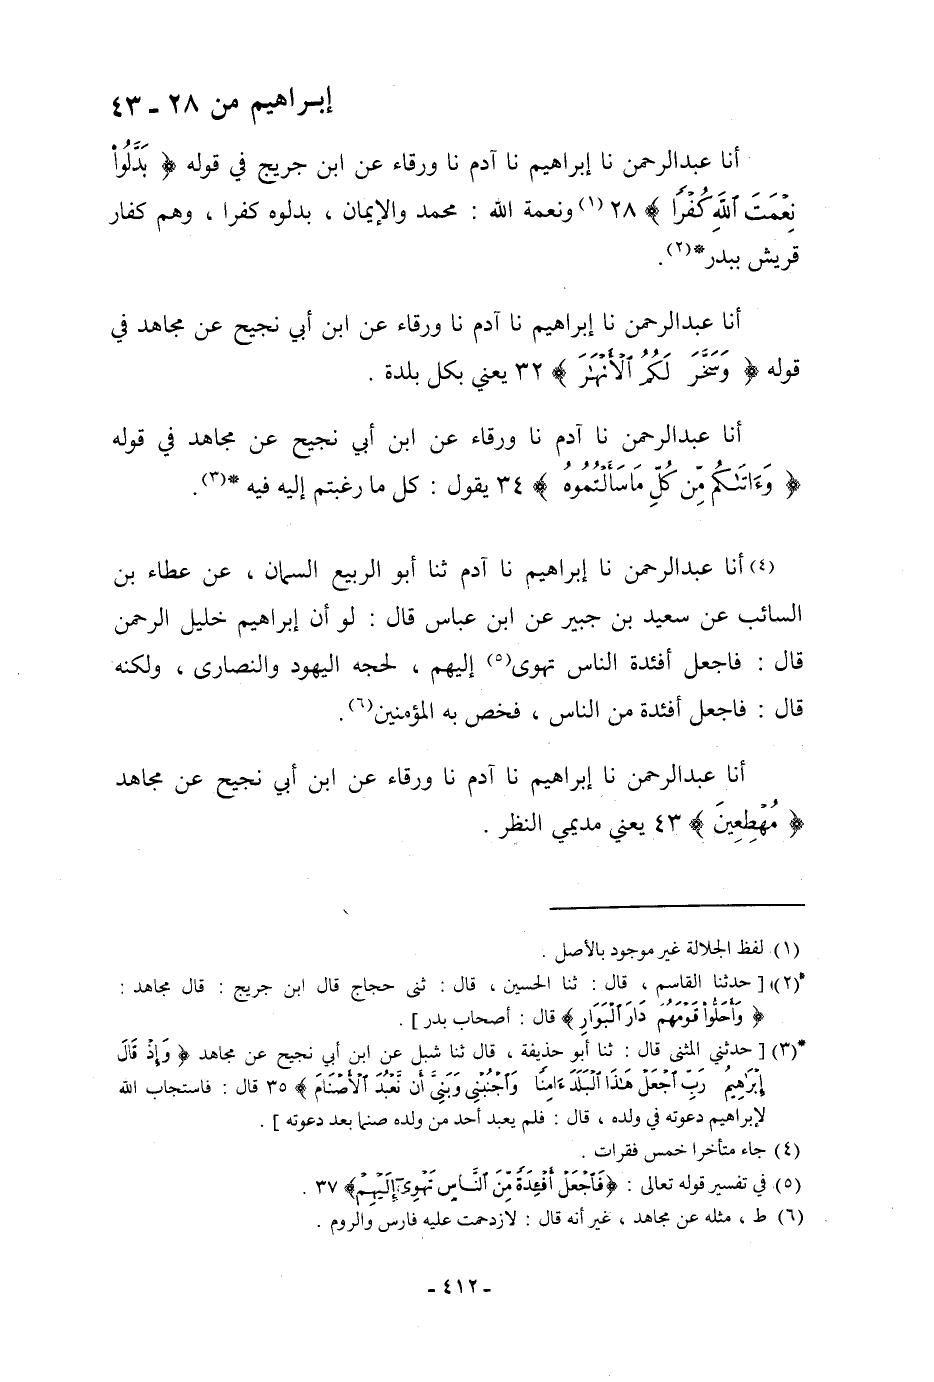 إبراهيم من ٢٨ ـ ٤٣
أنا عبدالرحمن نا إبراهيم نا آدم نا ورقاء عن ابن جريج في قوله ﴿ بَدَّلُوا۟
نِعْمَتَ ٱللَّهِ كُفْرًا ﴾ ٢٨ (١) ونعمة الله : محمد والإيمان ، بدلوه كفرا ، وهم كفار
قريش ببدر*(٢).
أنا عبدالرحمن نا إبراهيم نا آدم نا ورقاء عن ابن أبي نجيح عن مجاهد في
قوله ﴿ وَسَخَّرَ لَكُمُ ٱلْأَنْهَـٰرَ ﴾ ٣٢ يعني بكل بلدة .
أنا عبدالرحمن نا آدم نا ورقاء عن ابن أبي نجيح عن مجاهد في قوله
﴿ وَءَاتَىٰكُم مِّن كُلِّ مَا سَأَلْتُمُوهُ ﴾ ٣٤ يقول : كل ما رغبتم إليه فيه *(٣).
(٤) أنا عبدالرحمن نا إبراهيم نا آدم ثنا أبو الربيع السمان ، عن عطاء بن
السائب عن سعيد بن جبير عن ابن عباس قال : لو أن إبراهيم خليل الرحمن
قال : فاجعل أفئدة الناس تهوى(٥) إليهم ، لحجه اليهود والنصارى ، ولكنه
قال : فاجعل أفئدة من الناس ، فخص به المؤمنين(٦).
أنا عبدالرحمن نا إبراهيم نا آدم نا ورقاء عن ابن أبي نجيح عن مجاهد
﴿ مُهْطِعِينَ ﴾ ٤٣ يعني مديمي النظر .
(١) لفظ الجلالة غير موجود بالأصل .
*(٢) [ حدثنا القاسم ، قال : ثنا الحسين ، قال : ثنى حجاج قال ابن جريج : قال مجاهد :
﴿ وَأَحَلُّوا۟ قَوْمَهُمْ دَارَ ٱلْبَوَارِ ﴾ قال : أصحاب بدر ] .
*(٣) [ حدثني المثنى قال : ثنا أبو حذيفة ، قال ثنا شبل عن ابن أبي نجيح عن مجاهد ﴿ وَإِذْ قَالَ
إِبْرَٰهِيمُ رَبِّ ٱجْعَلْ هَـٰذَا ٱلْبَلَدَ ءَامِنًا وَٱجْنُبْنِى وَبَنِىَّ أَن نَّعْبُدَ ٱلْأَصْنَامَ ﴾ ٣٥ قال : فاستجاب الله
لإبراهيم دعوته في ولده ، قال : فلم يعبد أحد من ولده صنما بعد دعوته ] .
(٤) جاء متأخرا خمس فقرات .
(٥) في تفسير قوله تعالى : ﴿فَٱجْعَلْ أَفْـِٔدَةً مِّنَ ٱلنَّاسِ تَهْوِىٓ إِلَيْهِمْ﴾ ٣٧ .
(٦) ط ، مثله عن مجاهد ، غير أنه قال : لازدحمت عليه فارس والروم .
ـ ٤١٢ ـ